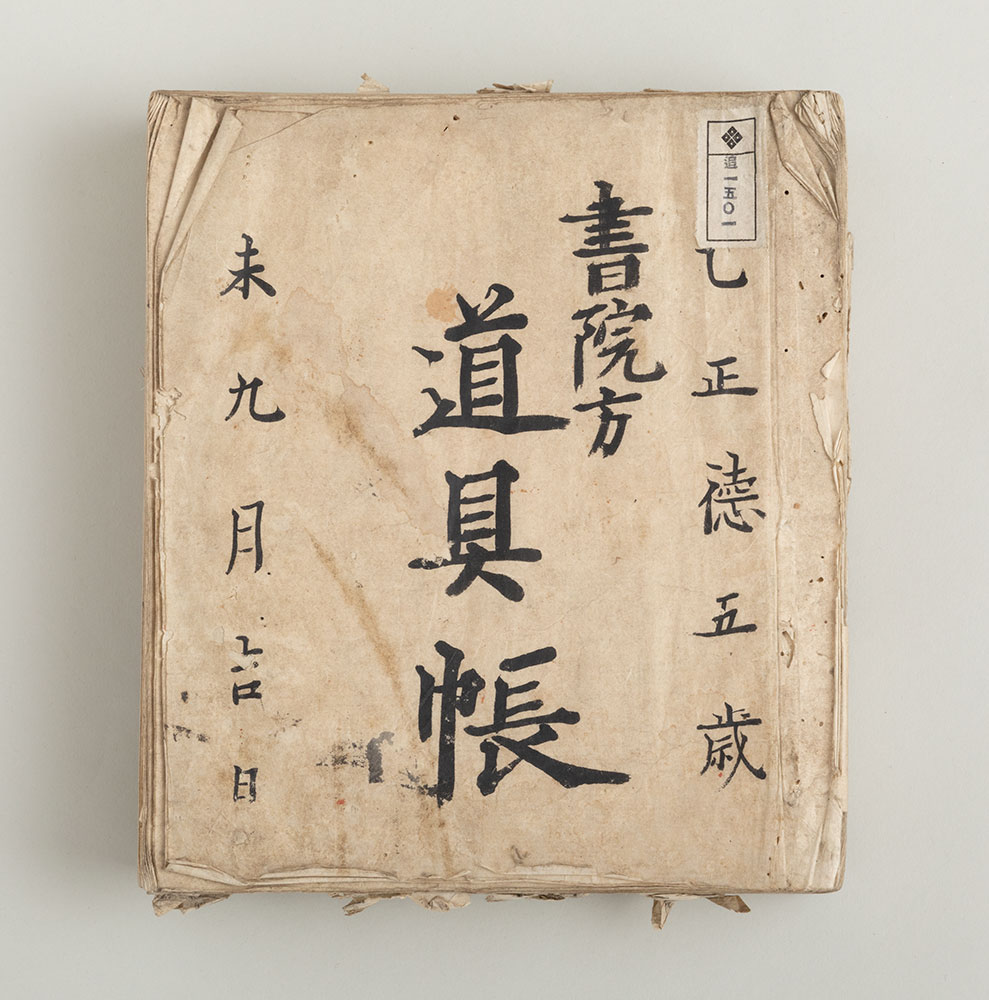 追一五〇一
乙正徳五歳
書院方
道具帳
未九月吉日